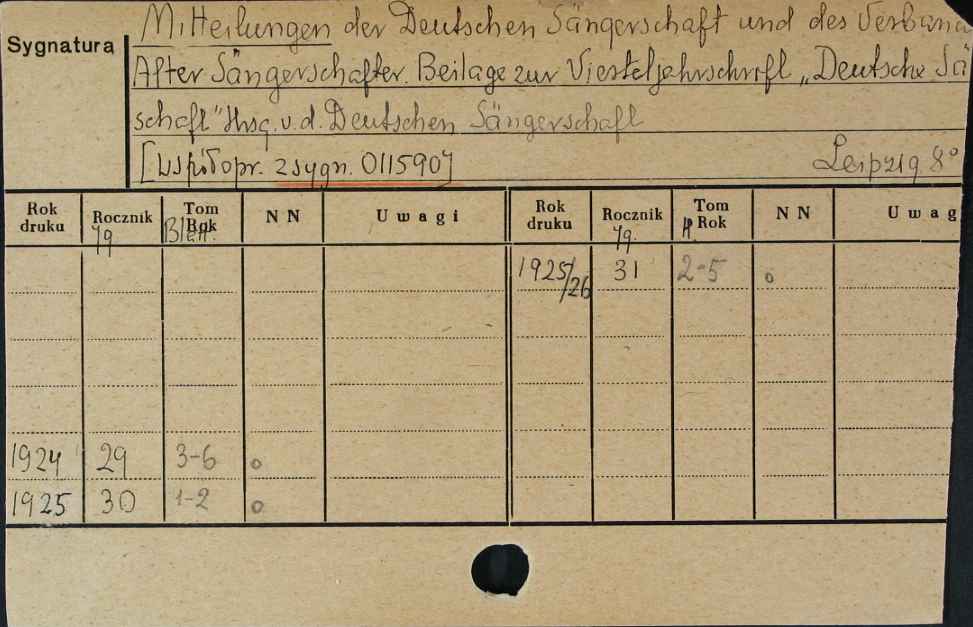 Sygnatura
Mitteilungen der Deutschen Sängerschaft und des Verban
Alter Sängerschafter. Beilage zur Vierteljahrschrift „Deutsche Sä
schaft" Hrsg. v. d. Deutschen Sängerschaft
[Współopr. z sygn. 011590] Leipzig 8°
Rok druku Rocznik Jg Tom Rok NN Uwagi Rok druku Rocznik Jg. Tom H. Rok NN Uwag
1925/26 31 2-5 o
1924 29 3-6 o
1925 30 1-2 o